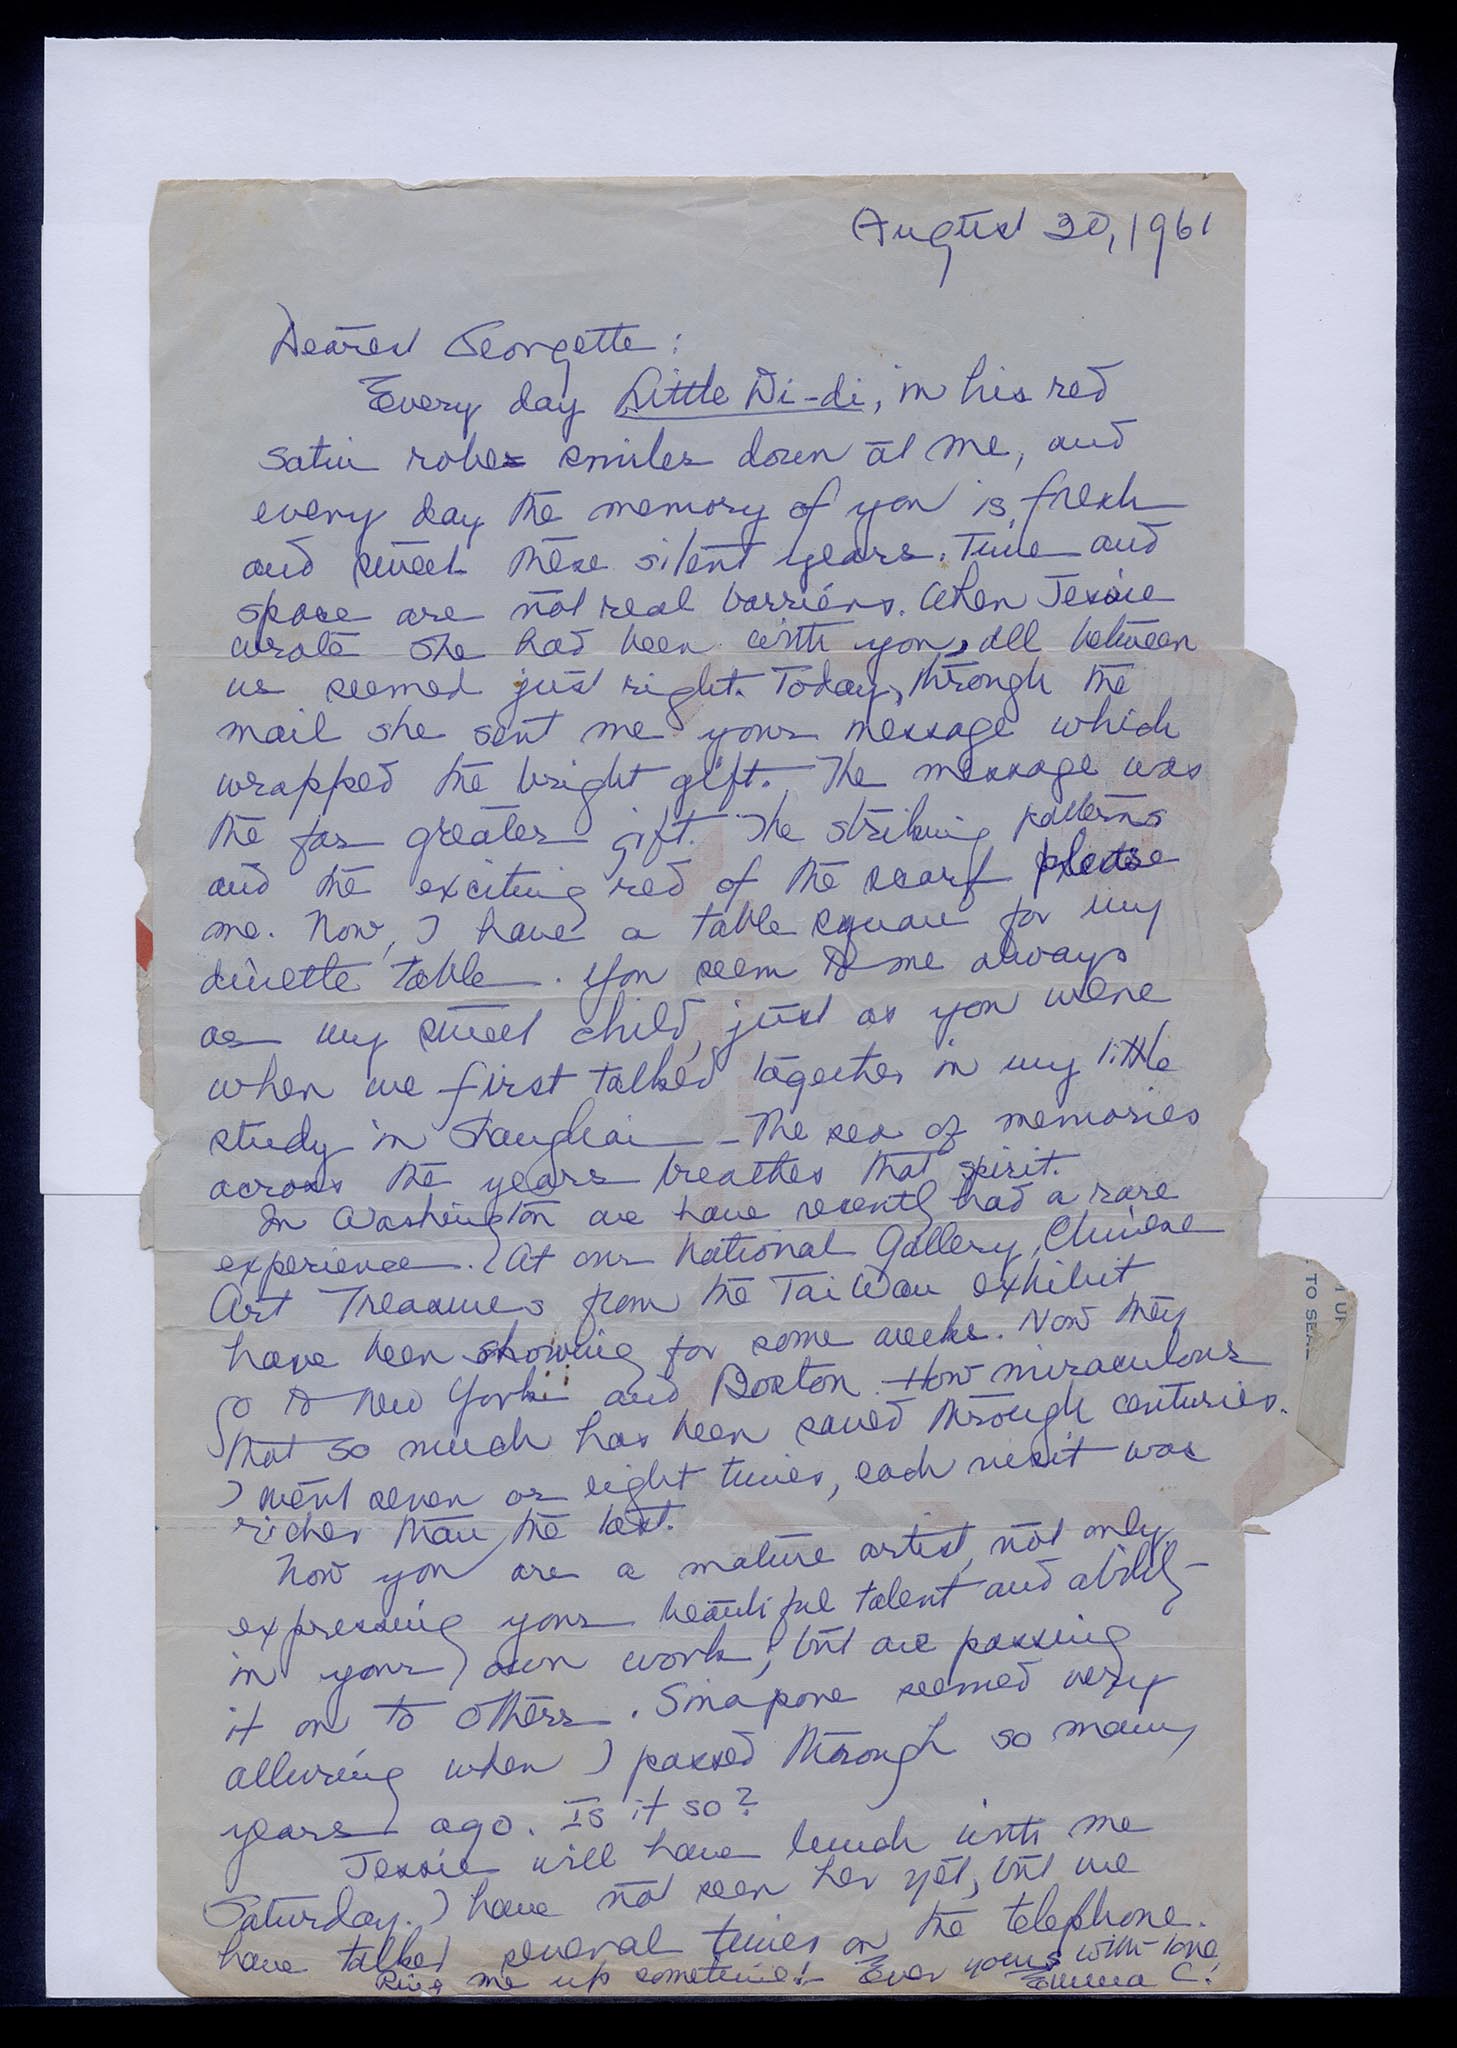 August 20, 1961
Dearest Georgette:
Every day Little Di-di, in his red
satin robes smiles down at me, and
every day the memory of you is fresh
and sweet these silent years. Time and
space are not real barriers. When Jessie
wrote she had been with you, all between
us seemed just right. Today, through the
mail she sent me your message which
wrapped the bright gift. The message was
the far greater gift. The striking patterns
and the exciting red of the scarf please
me. Now, I have a table square for my
dinette table. You seem to me always
as my sweet child, just as you were
when we first talked together in my little
study in Shanghai – The sea of memories
across the years breathes that spirit.
In Washington we have recently had a rare
experience. At our National Gallery, Chinese
Art Treasures from the TaiWan exhibit
have been showing for some weeks. Now they
go to New York and Boston. How miraculous
that so much has been saved through centuries.
I went seven or eight times, each visit was
richer than the last.
Now you are a mature artist, not only
expressing your beautiful talent and ability
in your own work, but are passing
it on to others. Sinapore seemed very
alluring when I passed through so many
years ago. Is it so?
Jessie will have lunch with me
Saturday. I have not seen her yet, but we
have talked several times on the telephone.
Ring me up sometime! – Ever yours with love
Emma C.
TO SEAL